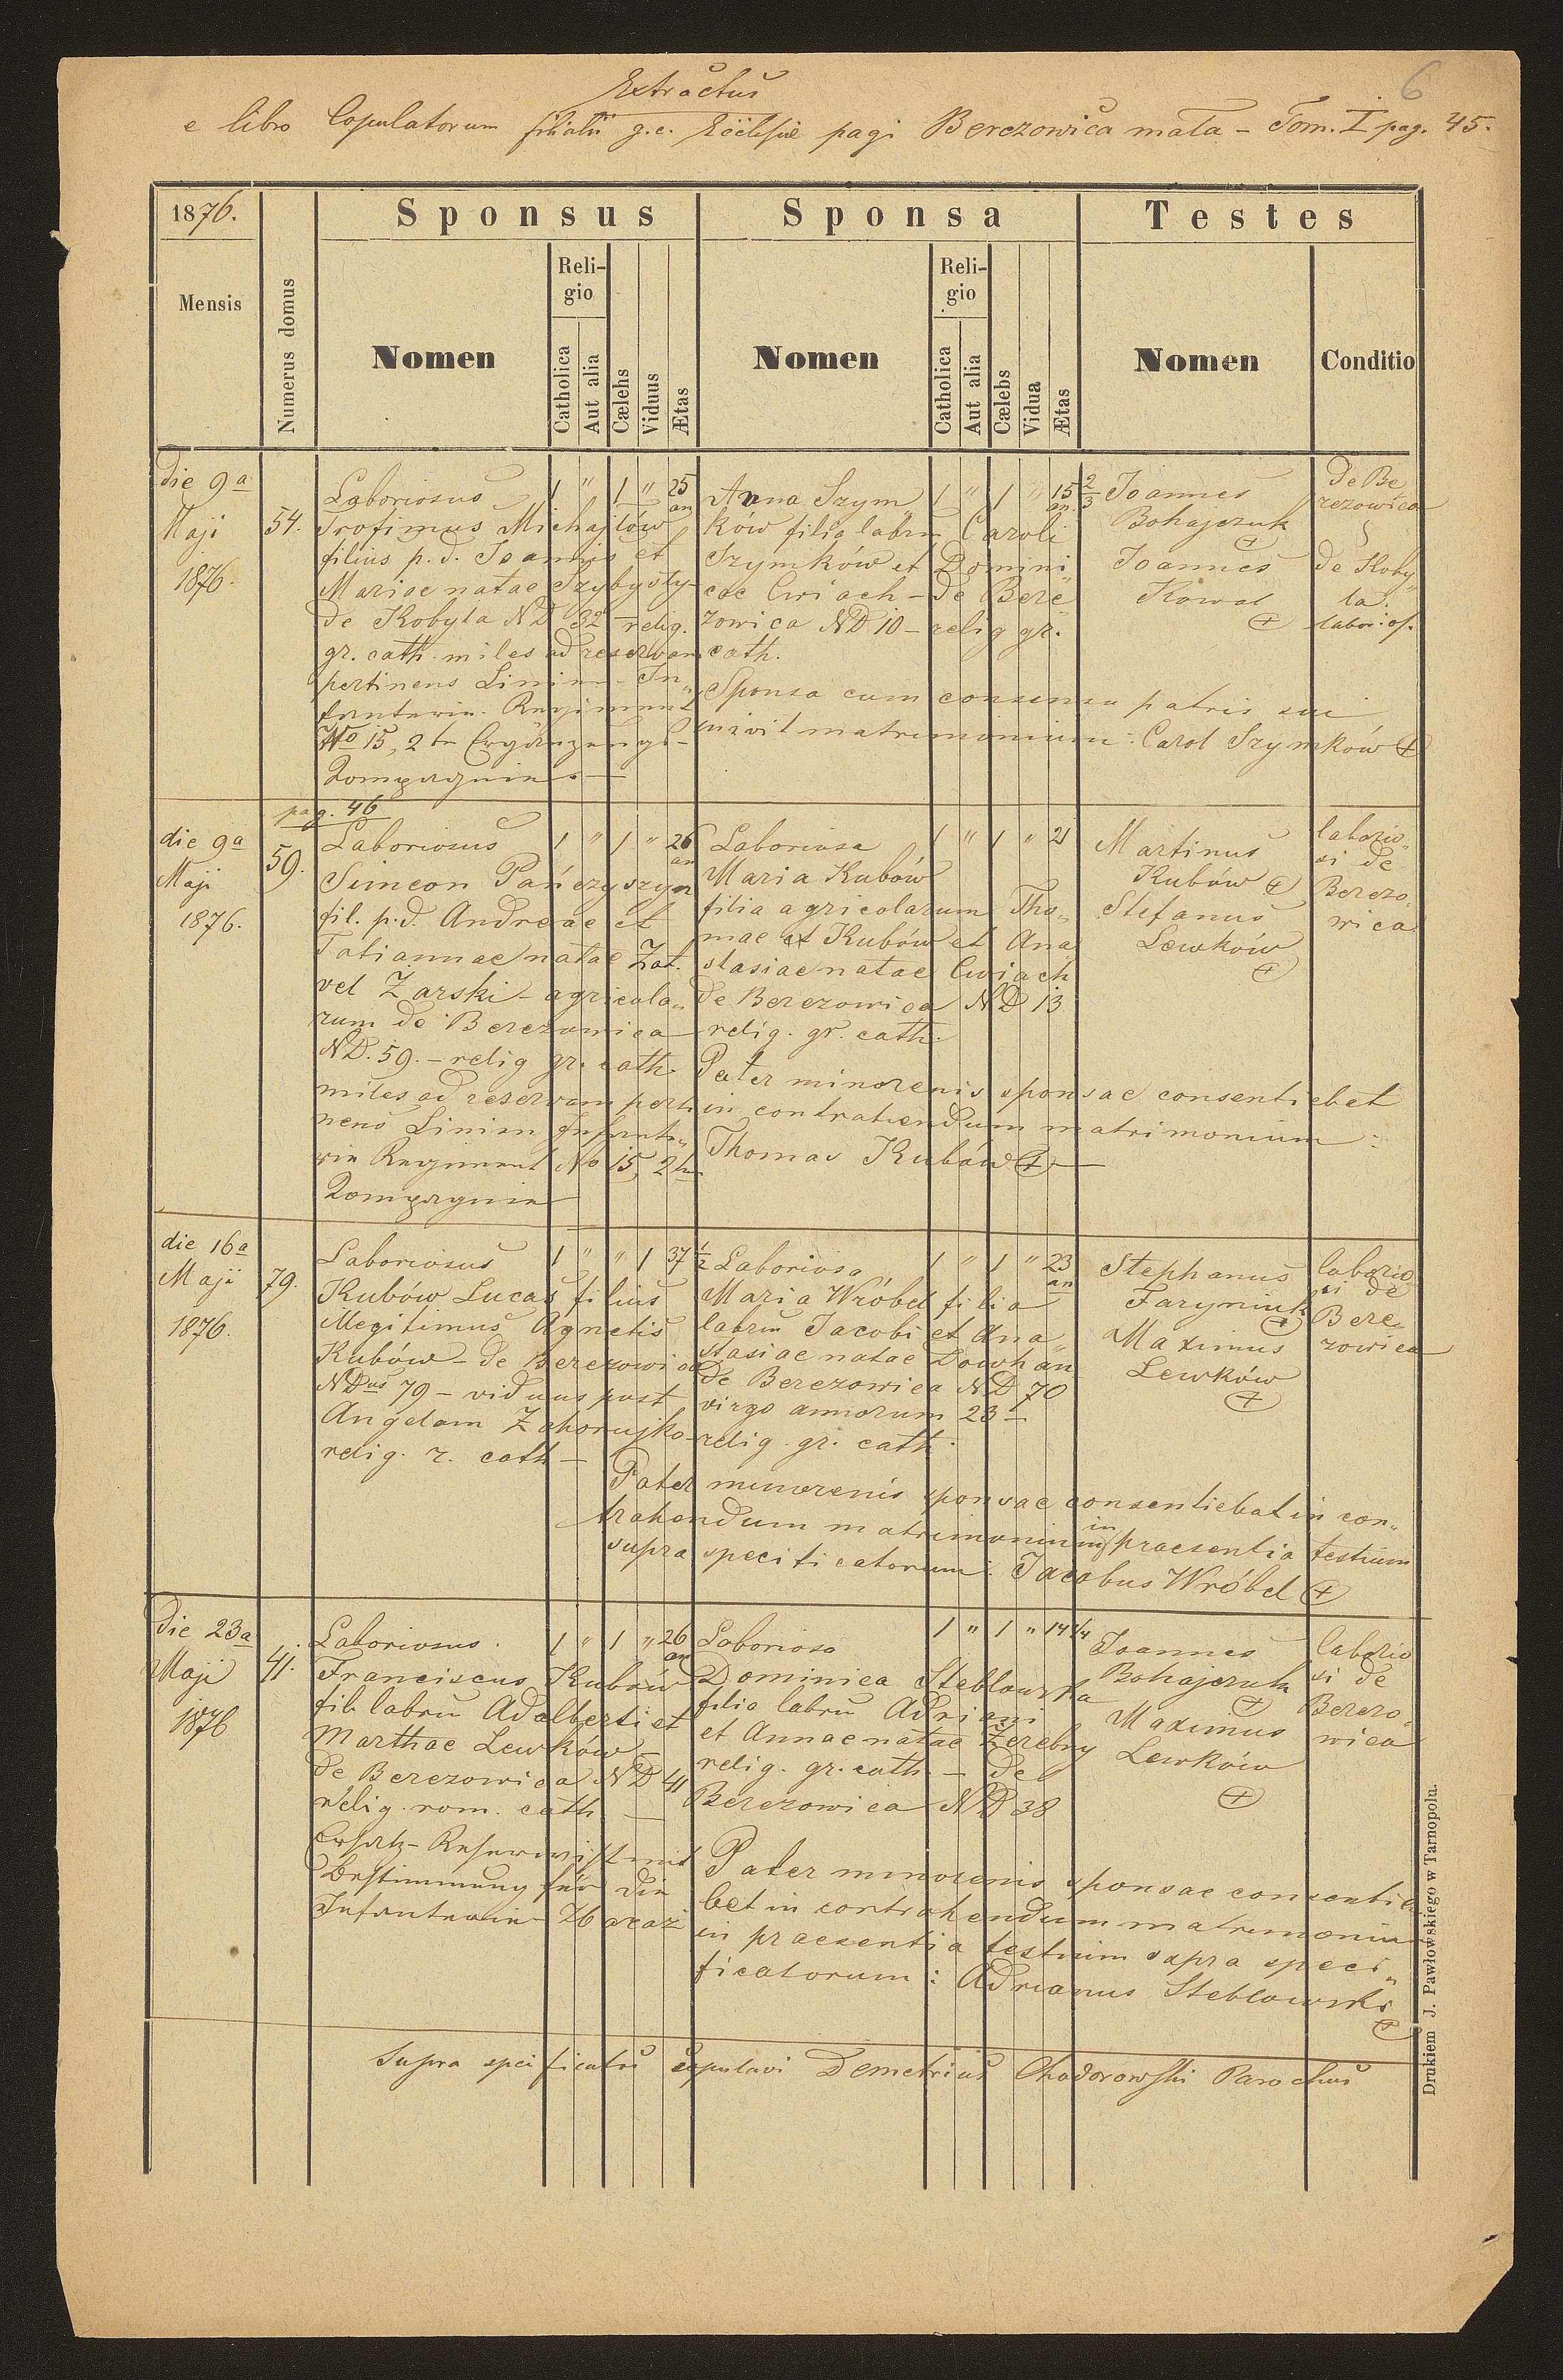 6
Extractus
e libro Copulatorum filialis g.c. Ecclesiæ pagi Berezowica mała - Tom. I pag. 45.
1876.
Mensis
Numerus domus
Sponsus
Nomen
Religio
Catholica
Aut alia
Cælebs
Viduus
Ætas
Sponsa
Nomen
Religio
Catholica
Aut alia
Cælebs
Vidua
Ætas
Testes
Nomen
Conditio
die 9a
Maji
1876.
54.
Laboriosus
Trofimus Michajłów
filius p.d. Joannis et
Mariae natae
de Kobyla ND 32 relig.
gr. cath. miles ad reservam
pertinens Linien In„
fanterie Regiment
No 15, 2te Ergänzungs-
Kompagnie
1 " 1 " 25 an
Anna Szym„
ków filia labrm Caroli
Szymków et Domini„
cae Cwiach - de Bere„
zowica ND 10 - relig gr.
cath.
Sponsa cum consensu patris sui
inivit matrimonium: Carol Szymków +
1 " 1 " 15 2/3 an.
Joannes
Bohajczuk
+
Joannes
Kowal
+
de Be
rezowica
de Koby„
la.
labori of.
pag. 46
die 9a
Maji
1876.
59.
Laboriosus
Simeon Pańczyszyn
fil. p.d. Andreae et
Tatiannae natae Zat.
vel Zarski - agricola„
rum de Berezowica
ND. 59. - relig gr. cath.
miles ad reservam perti
nens Linien Infante„
rie Regiment No 15, 2te
Kompagnie
1 " 1 " 26 an
Laboriosa
Maria Kubów
filia agricolarum Tho„
mae et Kubów et Ana
stasiae natae Cwiach
de Berezowica ND 13
relig. gr. cath.
Pater minorenis sponsae consentiebat
in contrahendum matrimonium:
Thomas Kubów +
1 " 1 " 21
Martinus
Kubów +
Stefanus
Lewków
+
laborio„
si de
Berezo„
wica
die 16a
Maji
1876.
79.
Laboriosus
Kubów Lucas filius
illegitimus Agnetis
Kubów - de Berezowica
NDus 79 - viduus post
Angelam Zahorujko -
relig. r. cath -
1 " " 1 37 1/2
Laboriosa
Maria Wróbel filia
labrm Jacobi et Ana„
stasiae natae Dowhan
de Berezowica ND 70
virgo annorum 23
relig. gr. cath.
Pater minorenis sponsae consentiebat in con„
trahendum matrimonium in praesentia testium
supra specificatorum: Jacobus Wróbel +
1 " 1 " 23 an
Stephanus
Faryniuk
+
Maximus
Lewków
+
laborio„
si de
Bere„
zowica
die 23a
Maji
1876
41.
Laboriosus.
Franciscus Kubów
fil. labrm Adalberti et
Marthae Lewków -
de Berezowica ND 41
relig. rom. cath -
Ersatz-Reservist mit
Bestimmung für die
Infanterie - Zbaraż
1 " 1 " 26 an
Laboriosa
Dominica Steblowska
filia labrm Adriani
et Annae natae Zerebny
relig. gr. cath - de
Berezowica ND 38
Pater minorenis sponsae consentie„
bat in contrahendum matrimonium
in praesentia testium supra speci„
ficatorum: Adrianus Steblowski
+
1 " 1 " 14 1/4
Joannes
Bohajczuk
+
Maximus
Lewków
+
laborio
si de
Berezo„
wica
Supra specificatos copulavi Demetrius Chodorowski Parochus
Drukiem J. Pawłowskiego w Tarnopolu.